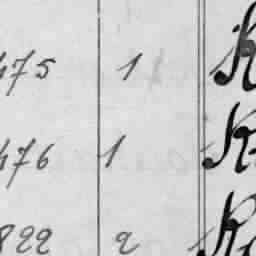 475 1 K
476 1 K
822 2 K